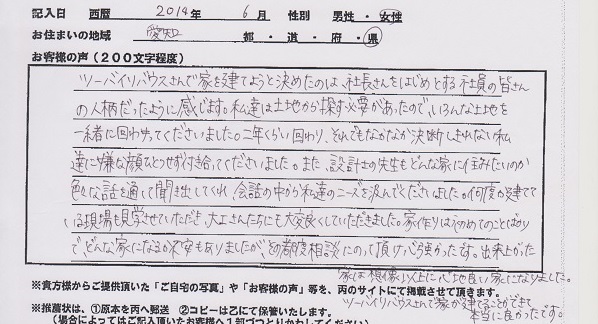 記入日 西暦 2014年 6月 性別 男性・女性
お住まいの地域 愛知 都・道・府・県
お客様の声（200文字程度）
ツーバイリバウスさんで家を建てようと決めたのは、社長さんをはじめとする社員の皆さん
の人柄だったように感じます。私達は土地から探す必要があったので、いろんな土地を
一緒に回わってくださいました。二年くらい回わり、それでもなかなか決断しきれない私
達に嫌な顔ひとつせず付き合ってくださいました。また、設計士の先生もどんな家に住みたいのか
色々な話を通して聞き出してくれ、会話の中から私達のニーズを汲んでくださいました。何度か建てて
いる現場も見学させていただき、大工さんたちにも大変良くしていただきました。家作りははじめてのことばかり
で、どんな家になるか不安もありましたが、その都度相談にのって頂け心強かったです。出来上がった
家は想像以上に心地良い家になりました。
※貴方様からご提供頂いた「ご自宅の写真」や「お客様の声」等を、丙のサイトにて掲載させて頂きます。
ツーバイリバウスさんで家が建てることができて
※推薦状は、①原本を丙へ郵送 ②コピーは乙にて保管いたします。
本当に良かったです。
（場合によってはご記入頂いたお客様へ1部づつとりかわしてください）